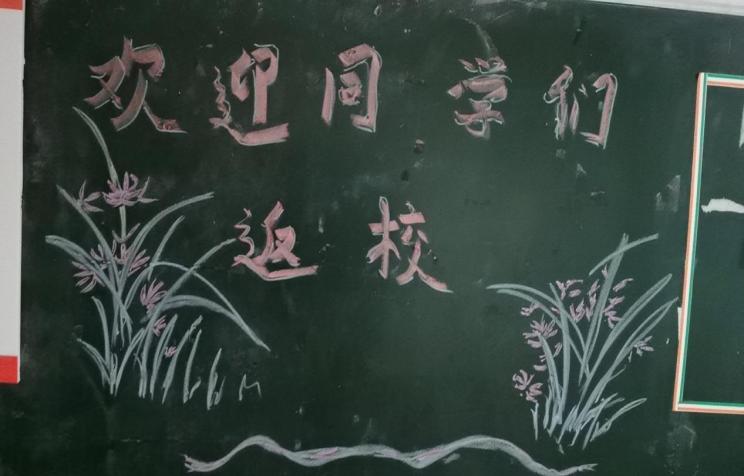 欢迎同学们
返校